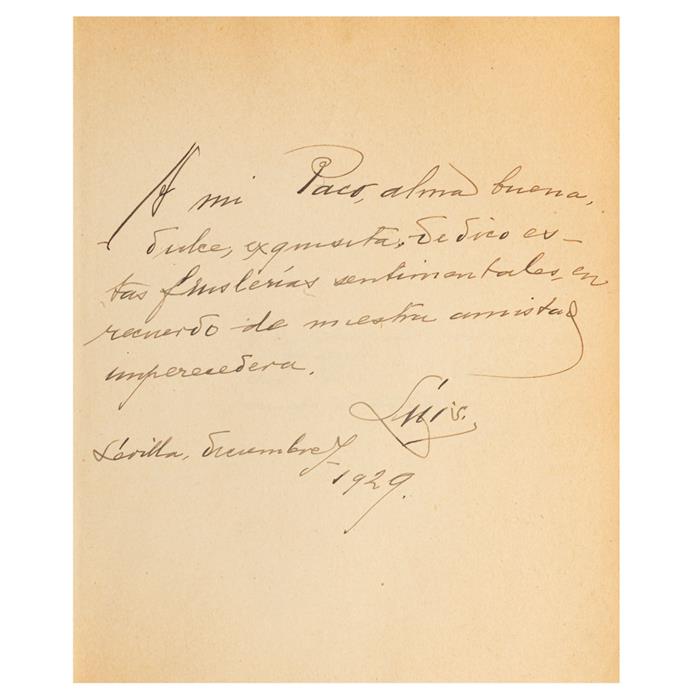 A mi Paco, alma buena,
dulce, exquisita, dedico es-
tas fruslerías sentimentales, en
recuerdo de nuestra amistad
imperecedera.
Luis.
Sevilla, diciembre 7
1929.